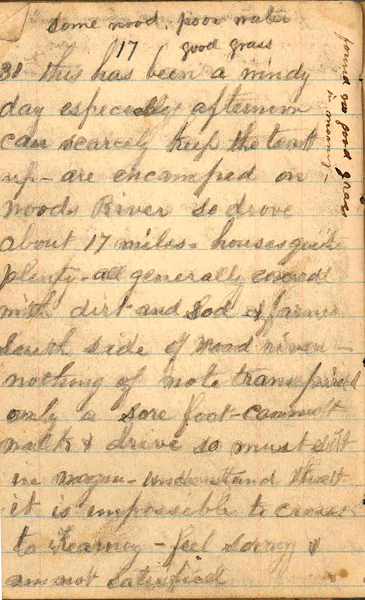 Some wood, poor water
17 good grass
31 This has been a windy
day especially afternoon
can scarcely keep the tent
up - are encamped on
Wood River so drove
about 17 miles - houses quite
plenty - all generally covered
with dirt and sod & farmed
South side of Wood river -
nothing of note transpired
only a sore foot - cannot
walk & drive so must sit
in wagon - understand that
it is impossible to cross
to Kearney - feel sorry &
am not satisfied
found no good grass
in morning -